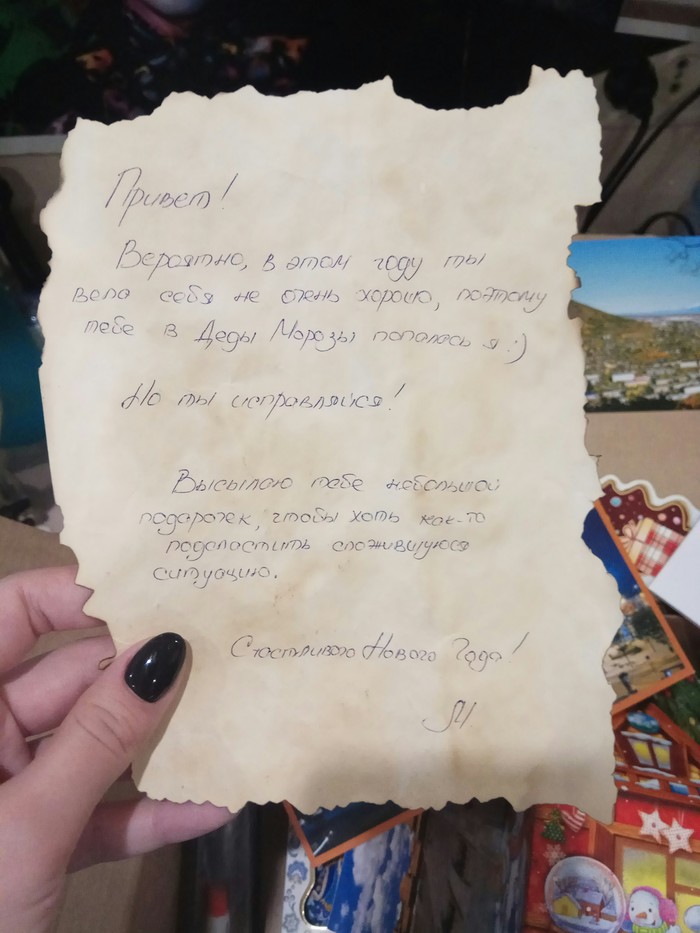 Привет!
Вероятно, в этом году ты
вела себя не очень хорошо, поэтому
тебе в Деды Морозы попалась я :)
Но ты исправляйся!
Высылаю тебе небольшой
подарочек, чтобы хоть как-то
подсластить сложившуюся
ситуацию.
Счастливого Нового Года!
М.